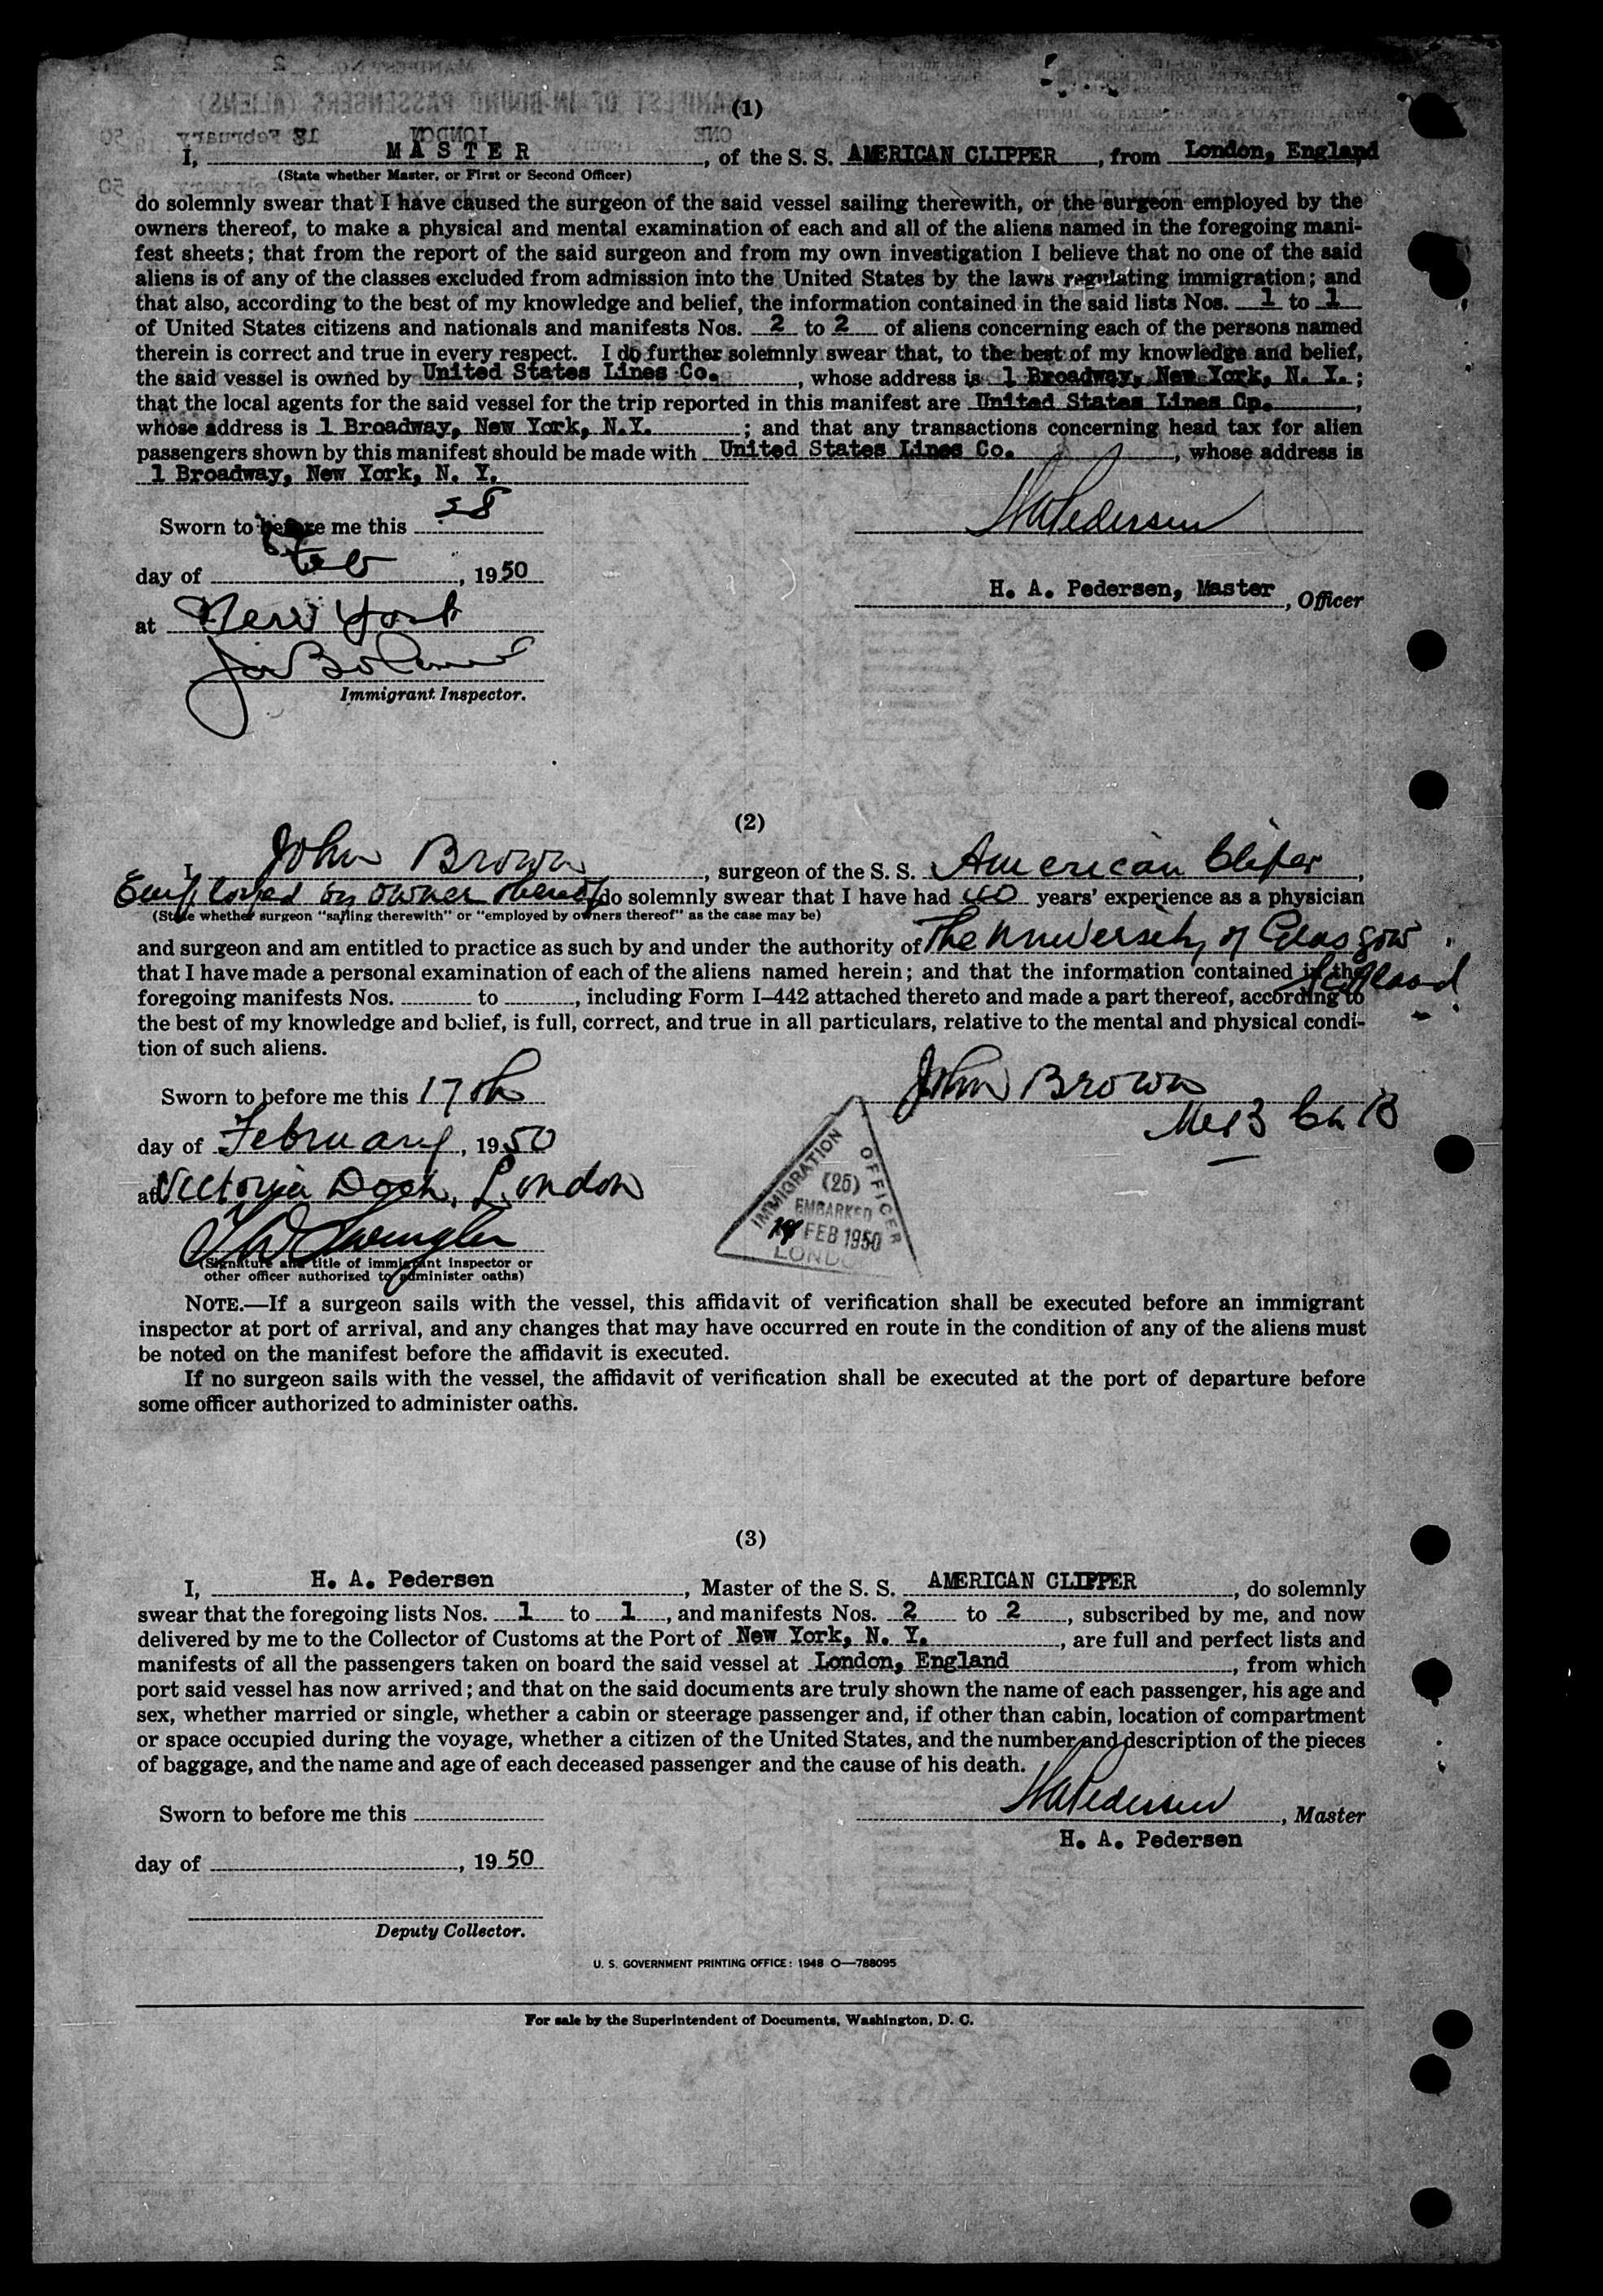 (1)
I, M A S T E R, of the S. S. AMERICAN CLIPPER, from London, England
(State whether Master, or First or Second Officer)
do solemnly swear that I have caused the surgeon of the said vessel sailing therewith, or the surgeon employed by the
owners thereof, to make a physical and mental examination of each and all of the aliens named in the foregoing mani-
fest sheets; that from the report of the said surgeon and from my own investigation I believe that no one of the said
aliens is of any of the classes excluded from admission into the United States by the laws regulating immigration; and
that also, according to the best of my knowledge and belief, the information contained in the said lists Nos. 1 to 1
of United States citizens and nationals and manifests Nos. 2 to 2 of aliens concerning each of the persons named
therein is correct and true in every respect. I do further solemnly swear that, to the best of my knowledge and belief,
the said vessel is owned by United States Lines Co., whose address is 1 Broadway, New York, N. Y.;
that the local agents for the said vessel for the trip reported in this manifest are United States Lines Co.,
whose address is 1 Broadway, New York, N.Y.; and that any transactions concerning head tax for alien
passengers shown by this manifest should be made with United States Lines Co., whose address is
1 Broadway, New York, N. Y.
Sworn to before me this 28
HAPedersen
day of Feb, 1950
H. A. Pedersen, Master, Officer
at New York
Immigrant Inspector.
(2)
I, John Brown, surgeon of the S. S. American Cliper,
Employed by owner thereof do solemnly swear that I have had 40 years' experience as a physician
(State whether surgeon "sailing therewith" or "employed by owners thereof" as the case may be)
and surgeon and am entitled to practice as such by and under the authority of The University of Glasgow
Scotland
that I have made a personal examination of each of the aliens named herein; and that the information contained in the
foregoing manifests Nos. to, including Form I-442 attached thereto and made a part thereof, according to
the best of my knowledge and belief, is full, correct, and true in all particulars, relative to the mental and physical condi-
tion of such aliens.
Sworn to before me this 17th
John Brown
MB Ch B
day of February, 1950
at Victoria Dock, London
IMMIGRATION OFFICER
(25)
EMBARKED
FEB 1950
LONDON
(Signature and title of immigrant inspector or
other officer authorized to administer oaths)
NOTE.—If a surgeon sails with the vessel, this affidavit of verification shall be executed before an immigrant
inspector at port of arrival, and any changes that may have occurred en route in the condition of any of the aliens must
be noted on the manifest before the affidavit is executed.
If no surgeon sails with the vessel, the affidavit of verification shall be executed at the port of departure before
some officer authorized to administer oaths.
(3)
I, H. A. Pedersen, Master of the S. S. AMERICAN CLIPPER, do solemnly
swear that the foregoing lists Nos. 1 to 1, and manifests Nos. 2 to 2, subscribed by me, and now
delivered by me to the Collector of Customs at the Port of New York, N. Y., are full and perfect lists and
manifests of all the passengers taken on board the said vessel at London, England, from which
port said vessel has now arrived; and that on the said documents are truly shown the name of each passenger, his age and
sex, whether married or single, whether a cabin or steerage passenger and, if other than cabin, location of compartment
or space occupied during the voyage, whether a citizen of the United States, and the number and description of the pieces
of baggage, and the name and age of each deceased passenger and the cause of his death.
Sworn to before me this
HAPedersen, Master
H. A. Pedersen
day of, 1950
Deputy Collector.
U. S. GOVERNMENT PRINTING OFFICE: 1948 O—788095
For sale by the Superintendent of Documents, Washington, D. C.